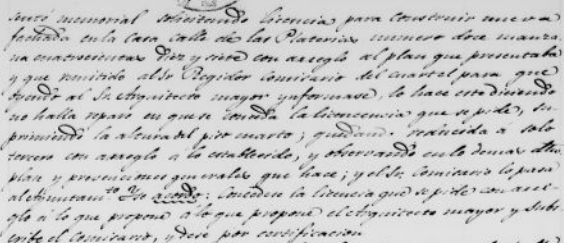 sentó memorial solicitando licencia para construir nueva
fachada en la casa calle de las Platerias numero doce manza-
na cuatrocientas diez y siete con arreglo al plan que presentaba
y que remitido al Sr. Regidor Comisario del cuartel para que
oyendo al Sr. Arquitecto mayor ynformase, lo hace este diciendo
no halla reparo en que se conceda la licencencia que se pide, su-
primiendo la altura del piso cuarto; quedando reducida á solo
tercero con arreglo á lo establecido, y observando en lo demas dho.
plan y prevenciones generales que hace; y el Sr. Comisario lo pasa
al Ayuntam.to Y se acordó: Concedese la licencia que se pide con arre-
glo á lo que propone á lo que propone el Arquitecto mayor y subs-
cribe el Comisario, y dese por certificacion